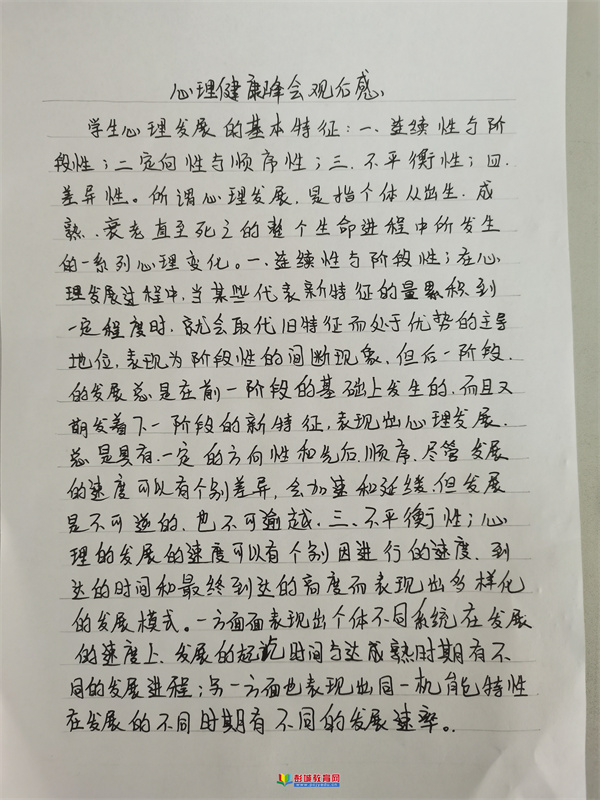 心理健康峰会观后感
学生心理发展的基本特征：一、连续性与阶
段性；二定向性与顺序性；三、不平衡性；四、
差异性。所谓心理发展，是指个体从出生、成
熟、衰老直至死亡的整个生命进程中所发生
的一系列心理变化。一、连续性与阶段性；在心
理发展过程中，当某些代表新特征的量累积到
一定程度时，就会取代旧特征而处于优势的主导
地位，表现为阶段性的间断现象。但后一阶段，
的发展总是在前一阶段的基础上发生的，而且又
期发着下一阶段的新特征，表现出心理发展，
总是具有，一定的方向性和先后，顺序，尽管发展
的速度可以有个别差异，会加速和延缓，但发展
是不可逆的，也不可逾越。三、不平衡性；心
理的发展的速度可以有个别因进行的速度、到
达的时间和最终到达的高度而表现出多样化
的发展模式。一方面面表现出个体不同系统在发展
的速度上、发展的起讫时间与达成熟时期有不
同的发展进程；另一方面也表现出同一机能特性
在发展的不同时期有不同的发展速率。
彭城教育网